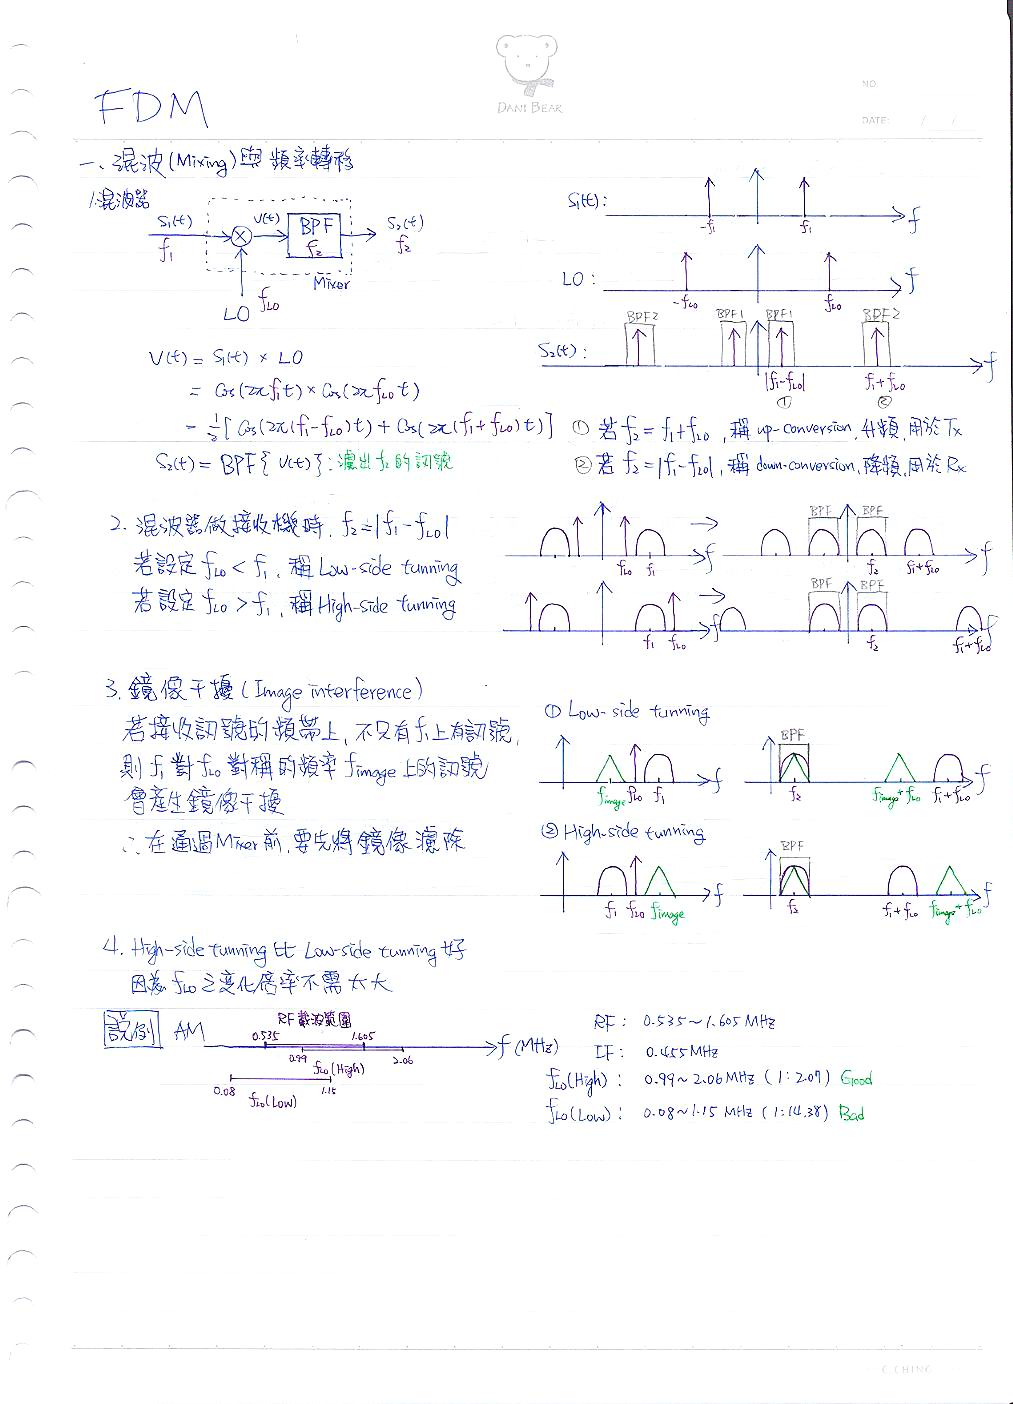 DANI BEAR
NO.
DATE: / /
FDM
一、混波(Mixing)與頻率轉移
1.混波器
S₁(t)
f₁
V(t)
BPF
f₂
S₂(t)
f₂
Mixer
f_LO
LO
S₁(t):
-f₁
f₁
f
LO:
-f_LO
f_LO
f
BPF2
BPF1
BPF1
BPF2
S₂(t):
|f₁-f_LO|
f₁+f_LO
f
①
②
V(t) = S₁(t) × LO
= Cos(2πf₁t) × Cos(2πf_LO t)
= ½[Cos(2π(f₁-f_LO)t) + Cos(2π(f₁+f_LO)t)]
S₂(t) = BPF{V(t)} : 濾出f₂的訊號
① 若f₂=f₁+f_LO, 稱up-conversion, 升頻, 用於Tx
② 若f₂=|f₁-f_LO|, 稱down-conversion, 降頻, 用於Rx
2. 混波器做接收機時, f₂=|f₁-f_LO|
若設定f_LO<f₁, 稱Low-side tunning
若設定f_LO>f₁, 稱High-side tunning
f_LO
f₁
f
BPF
BPF
f₂
f₁+f_LO
f
f₁
f_LO
f
BPF
BPF
f₂
f₁+f_LO
f
3. 鏡像干擾(Image interference)
若接收訊號的頻帶上, 不只有f₁上有訊號,
則f₁對f_LO對稱的頻率f_image上的訊號
會產生鏡像干擾
∴在通過Mixer前, 要先將鏡像濾除
① Low-side tunning
f_image
f_LO
f₁
f
BPF
f₂
f_image+f_LO
f₁+f_LO
f
② High-side tunning
f₁
f_LO
f_image
f
BPF
f₂
f₁+f_LO
f_image+f_LO
f
4. High-side tunning 比 Low-side tunning 好
因為f_LO之變化倍率不需太大
說例
AM
RF載波範圍
0.535
1.605
f(MHz)
0.99
2.06
f_LO(High)
0.08
1.15
f_LO(Low)
RF: 0.535~1.605 MHz
IF: 0.455MHz
f_LO(High): 0.99~2.06 MHz (1:2.07) Good
f_LO(Low): 0.08~1.15 MHz (1:14.38) Bad
C.CHING